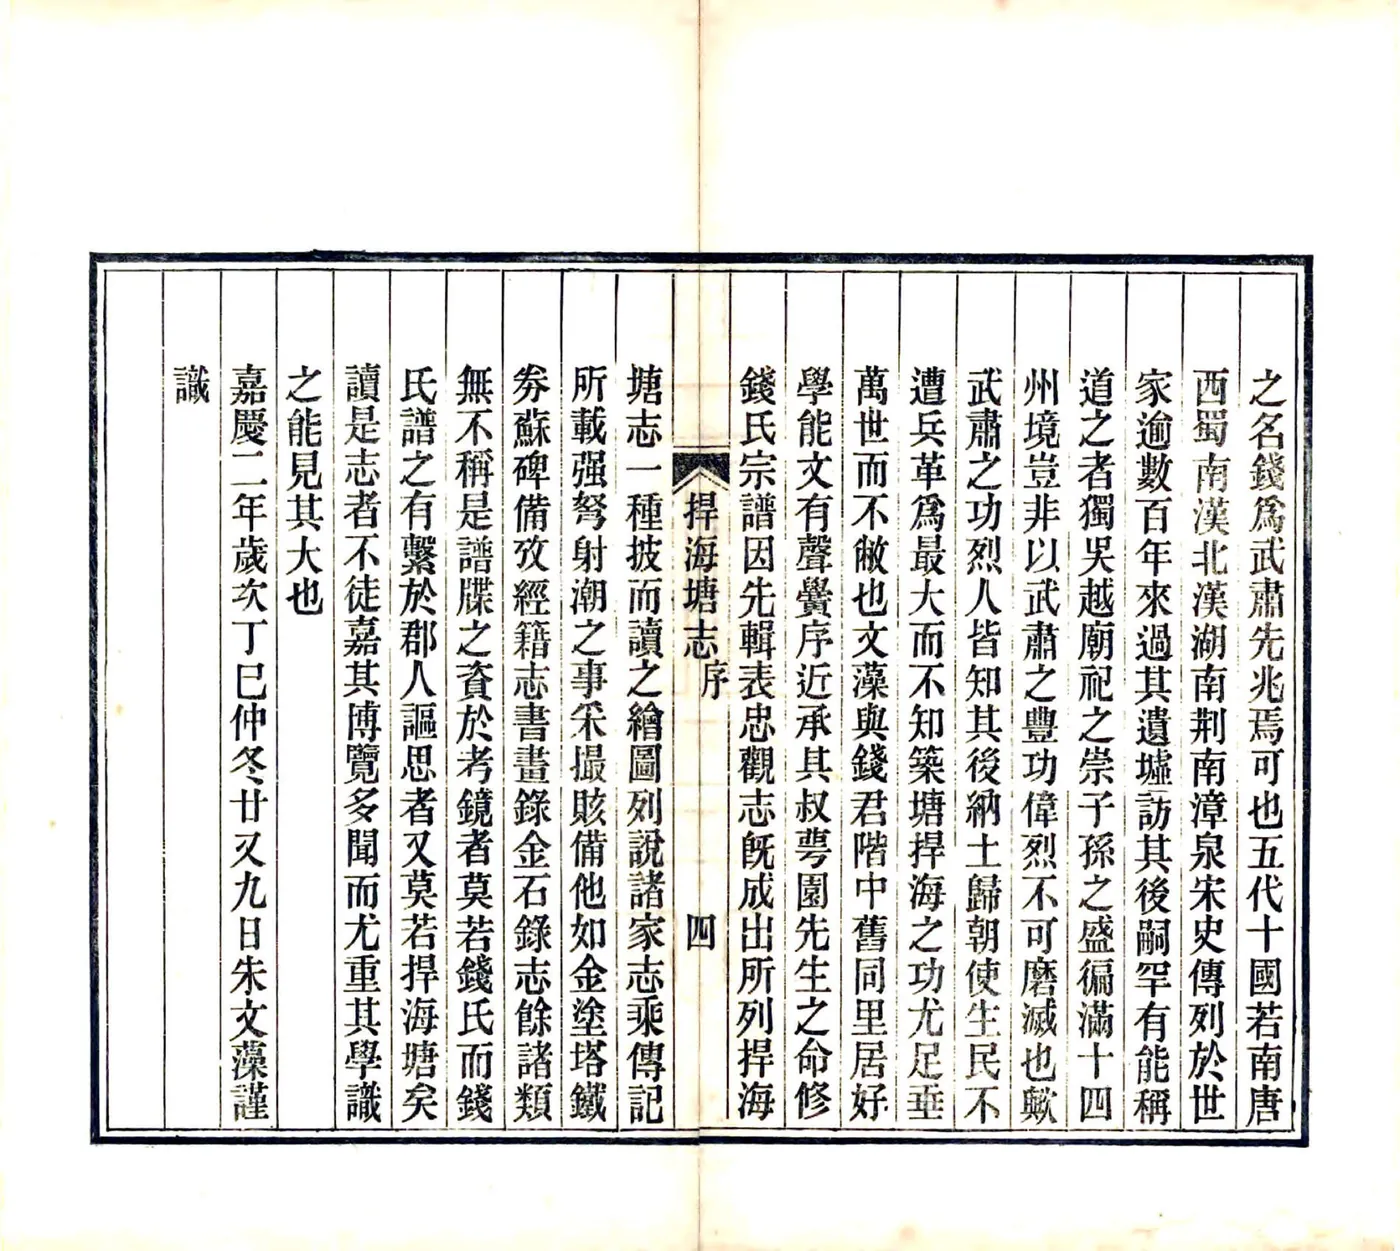 之名錢爲武肅先兆焉可也五代十國若南唐
西蜀南漢北漢湖南荆南漳泉宋史傳列於世
家逾數百年來過其遺墟訪其後嗣罕有能稱
道之者獨吳越廟祀之崇子孫之盛徧滿十四
州境豈非以武肅之豐功偉烈不可磨滅也歟
武肅之功烈人皆知其後納土歸朝使生民不
遭兵革爲最大而不知築塘捍海之功尤足垂
萬世而不敝也文藻與錢君階中舊同里居好
學能文有聲黌序近承其叔萼園先生之命修
錢氏宗譜因先輯表忠觀志旣成出所列捍海
捍海塘志 序 四
塘志一種披而讀之繪圖列說諸家志乘傳記
所載强弩射潮之事采撮賅備他如金塗塔鐵
券蘇碑備攷經籍志書畫錄金石錄志餘諸類
無不稱是譜牒之資於考鏡者莫若錢氏而錢
氏譜之有繫於郡人謳思者又莫若捍海塘矣
讀是志者不徒嘉其博覽多聞而尤重其學識
之能見其大也
嘉慶二年歲次丁巳仲冬廿又九日朱文藻謹
識